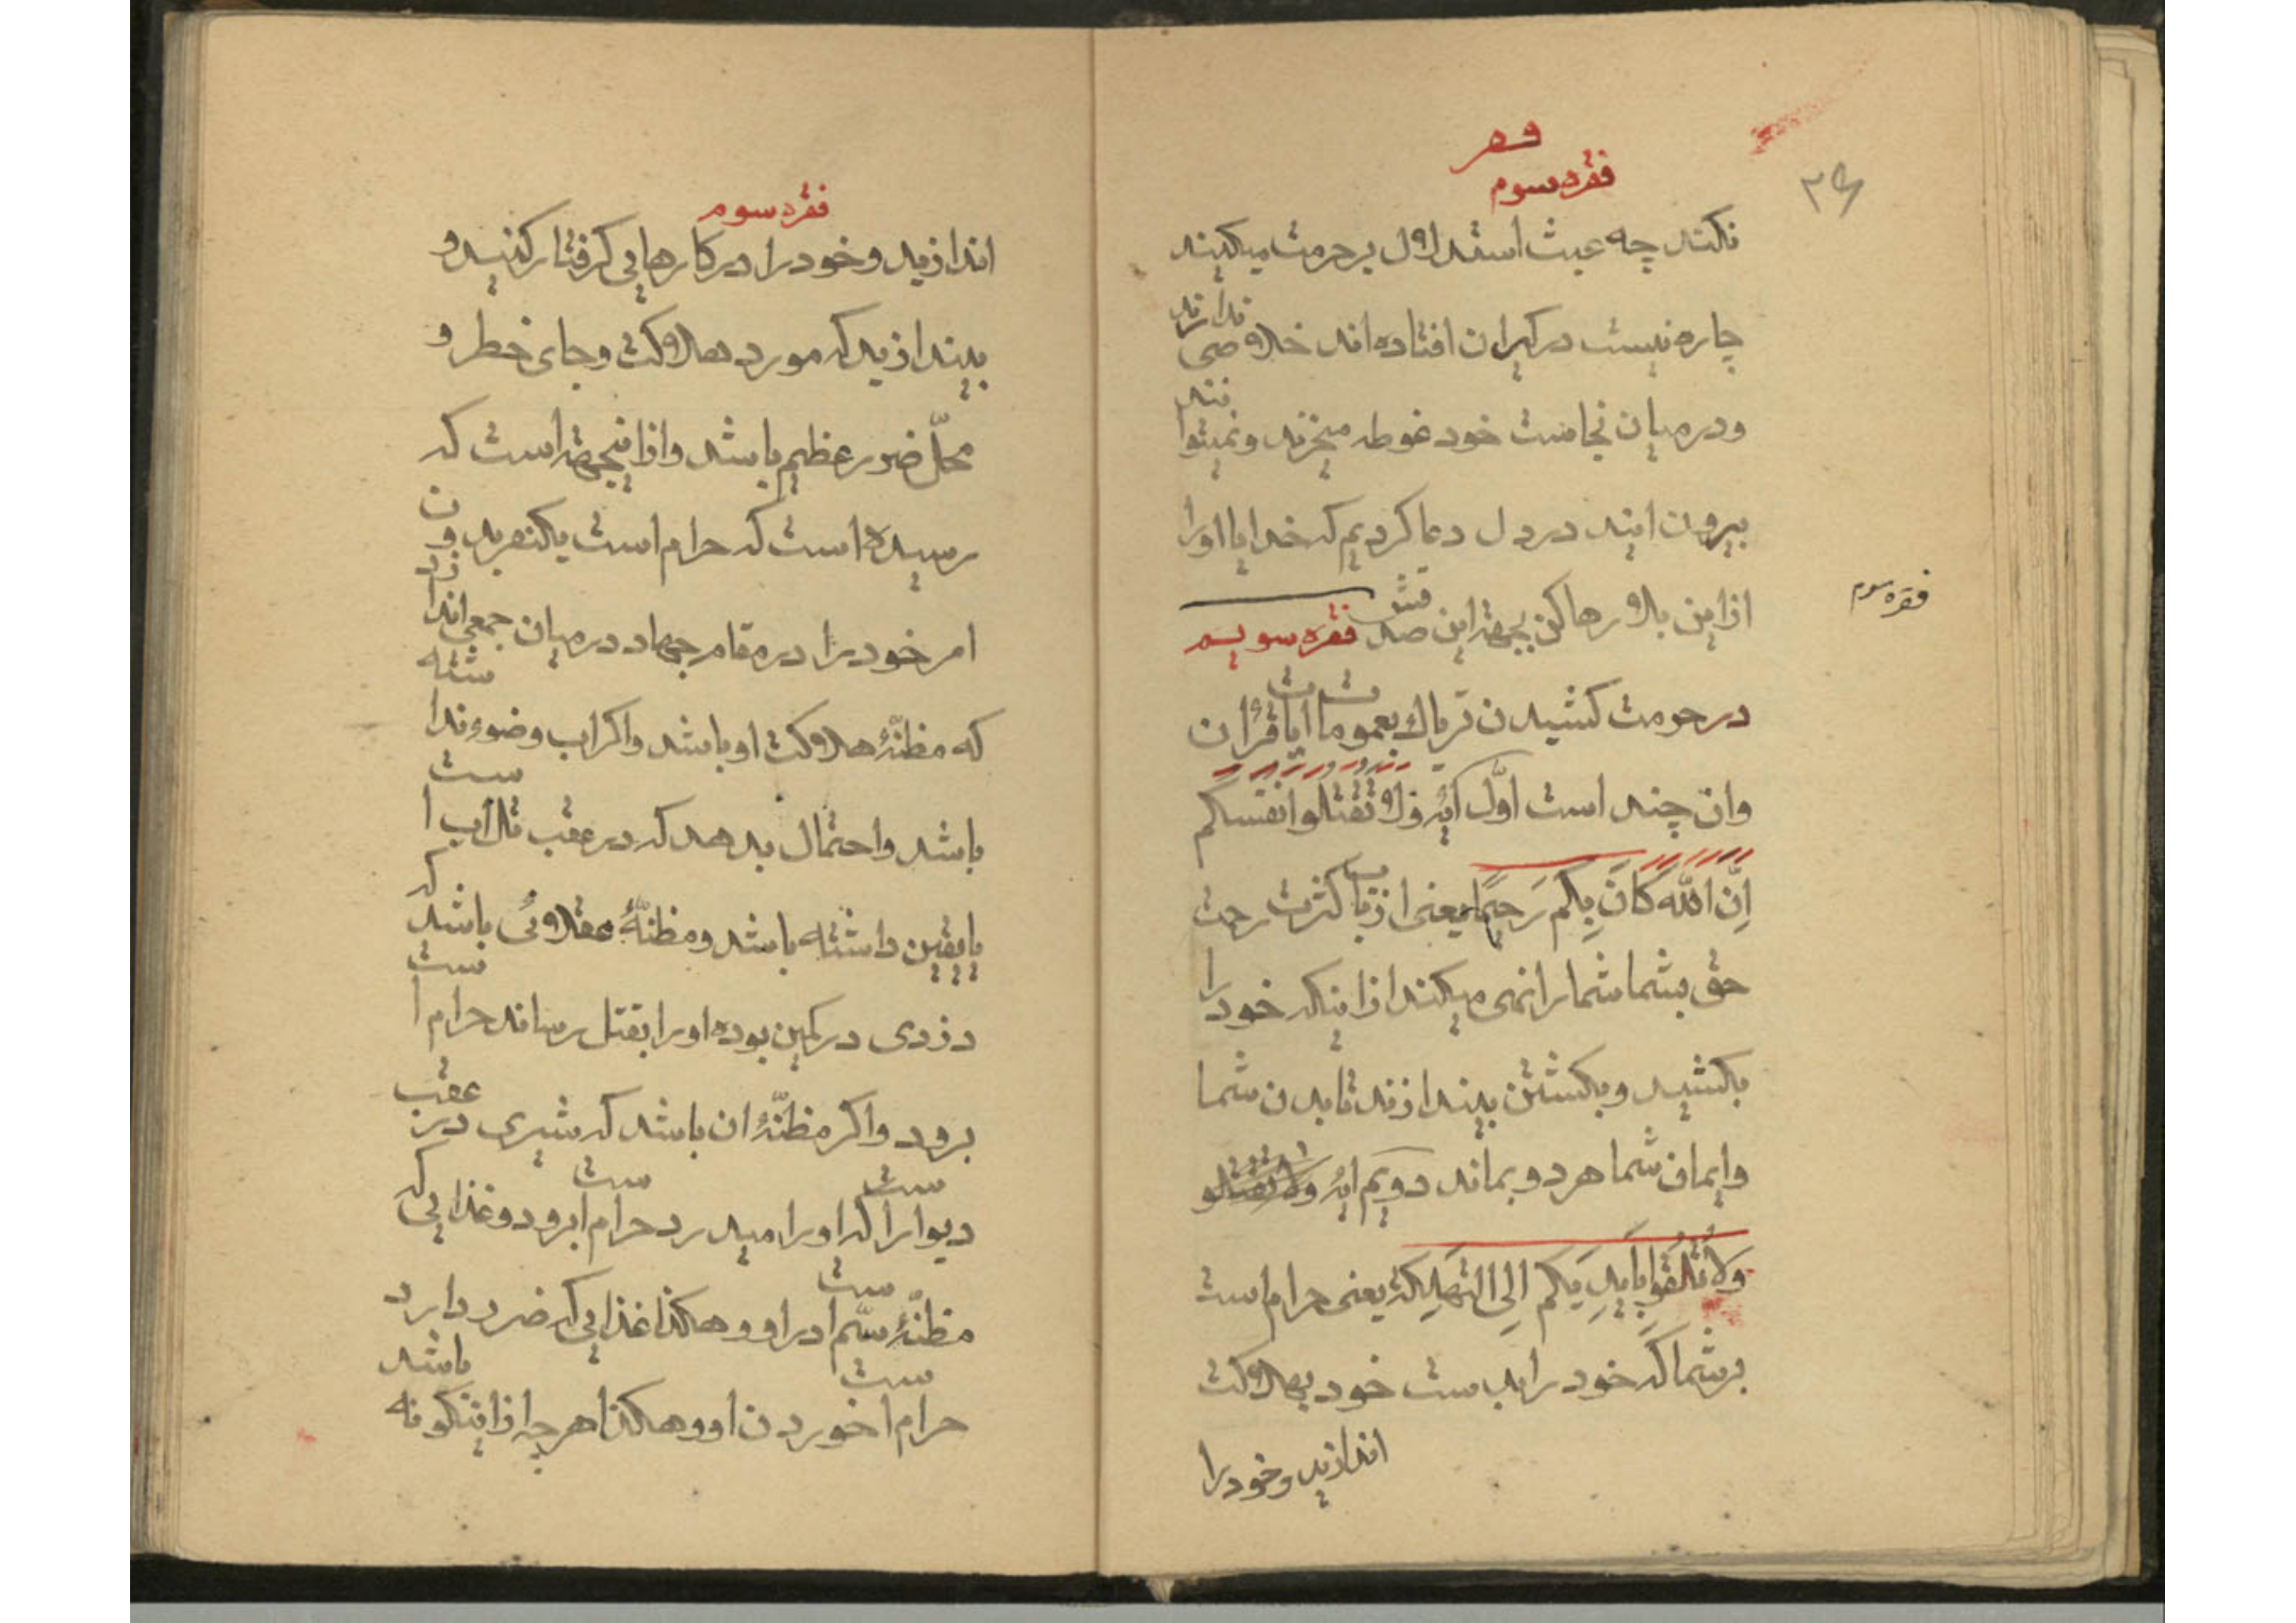 فقره سوم
۲۶
نکند چه عبث استدلال بر حرمت میکنند
چاره نیست در کران افتاده اند خلاصی ندارند
ودر میان نجاست خود غوطه میخزند و نمیتوانند
بیرون ایند در دل دعا کردیم که خدایا اورا
ازاین بلا رها کن بجهة این صد فقره سویم
فقره سوم
در حرمت کشیدن تریاک بعمومات ایات قرآن
وان چند است اوّل آیهٔ ولا تقتلوا انفسکم
اِنّ اللّه کَانَ بِکُم رَحیمًا یعنی از باب کثرت رحمت
حق بشما شما را نهی میکند از اینکه خود را
بکشید و بکشتن بیندازند تا بدن شما
وایمان شما هر دو بماند دویم ایهٔ ولا تقتلو
وَلا تُلقُوا بِاَیدِیَکُم اِلیَ التهلِکة یعنی حرام است
بر شما که خود را بدست خود بهلاکت
اندازید و خود را
فقره سوم
اندازید و خود را در کارهایی گرفتار کنید و
بیندازید که مورد هلاکت و جای خطر و
محلّ ضرر عظیم باشد و از اینجهة است که
رسیده است که حرام است یکنفر بدون
امر خود را در مقام جهاد در میان جمعی اندازد
که مظنّهٔ هلاکت او باشد و اکر اب وضوء نداشته
باشد و احتمال بدهد که در عقب تل آب است
یا یقین داشته باشد و مظنّهٔ عقلائی باشد که
دزدی در کمین بوده اورا بقتل رساند حرام است
برود و اکر مظنّهٔ ان باشد که شیری در عقب
دیوار است که اورا میدرد حرام است برود و غذایی که
مظنّهٔ سمّ است در او و هکذا غذایی که ضرر دارد
حرام است خوردن او و هکذا هر چه از اینکونه باشد